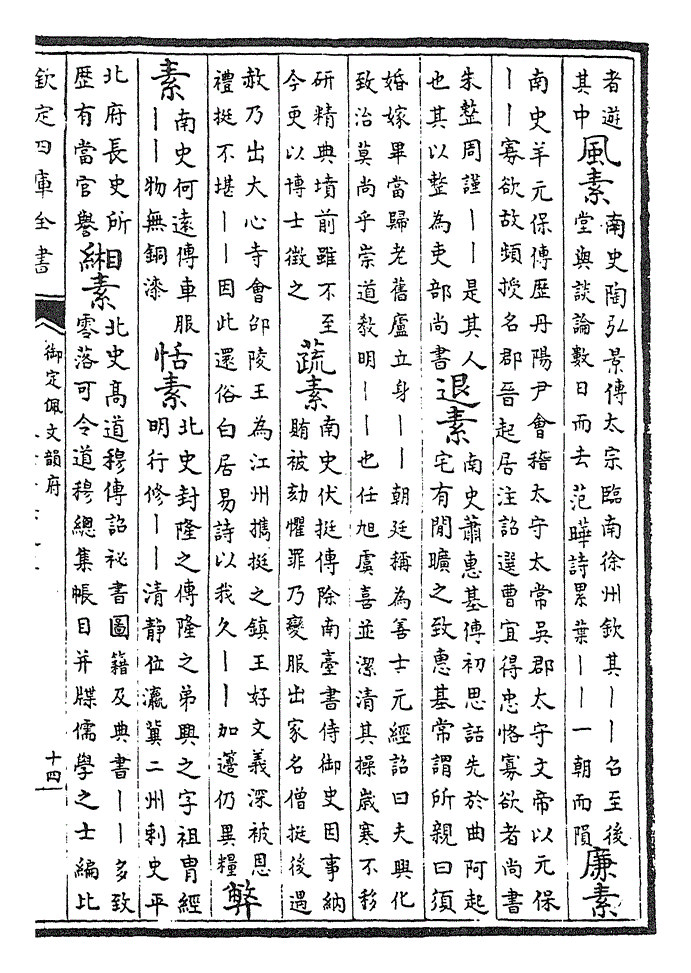 者遊
其中
風素
南史陶弘景傳太宗臨南徐州欽其丨丨召至後
堂與談論數日而去范曄詩累葉丨丨一朝而隕
廉素
南史羊元保傳歴丹陽尹會稽太守太常吳郡太守文帝以元保
丨丨寡欲故頻授名郡晉起居注詔選曹宜得忠恪寡欲者尚書
朱整周謹丨丨是其人
也其以整為吏部尚書
退素
南史蕭惠基傳初思話先於曲阿起
宅有閒曠之致惠基常謂所親曰須
婚嫁畢當歸老舊廬立身丨丨朝廷稱為善士元經詔曰夫興化
致治莫尚乎崇道教明丨丨也任旭虞喜並潔清其操嵗寒不移
研精典墳前雖不至
今更以博士徵之
蔬素
南史伏挺傳除南臺書侍御史因事納
賄被劾懼罪乃變服出家名僧挺後遇
赦乃出大心寺會邵陵王為江州攜挺之鎮王好文義深被恩
禮挺不堪丨丨因此還俗白居易詩以我久丨丨加籩仍異糧
觧
素
南史何遠傳車服
丨丨物無銅漆
恬素
北史封隆之傳隆之弟興之字祖胄經
明行修丨丨清靜位瀛冀二州刺史平
北府長史所
歴有當官譽
緗素
北史髙道穆傳詔祕書圖籍及典書丨丨多致
零落可令道穆總集帳目并牒儒學之士編比
欽定四庫全書
御定佩文韻府
十四